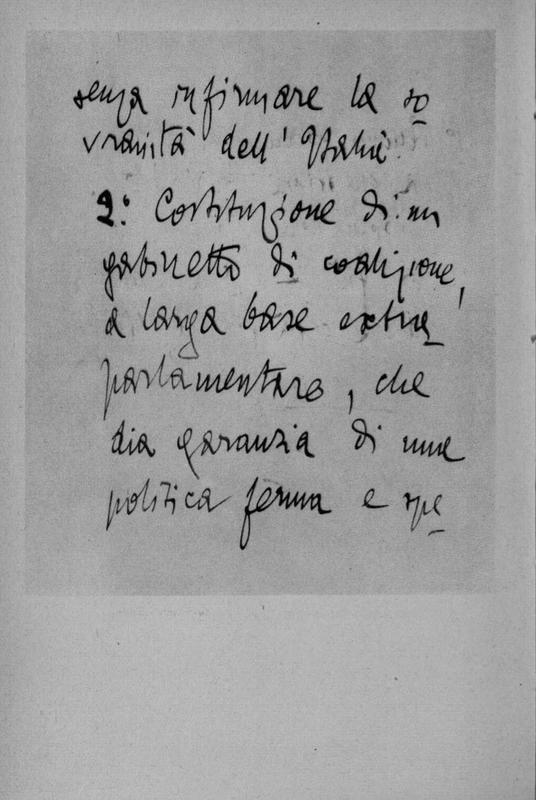 senza infirmare la so
vranità dell'Italia.
2º: Costituzione di un
gabinetto di coalizione,
a larga base extra
parlamentare, che
dia garanzia di una
politica ferma e spe